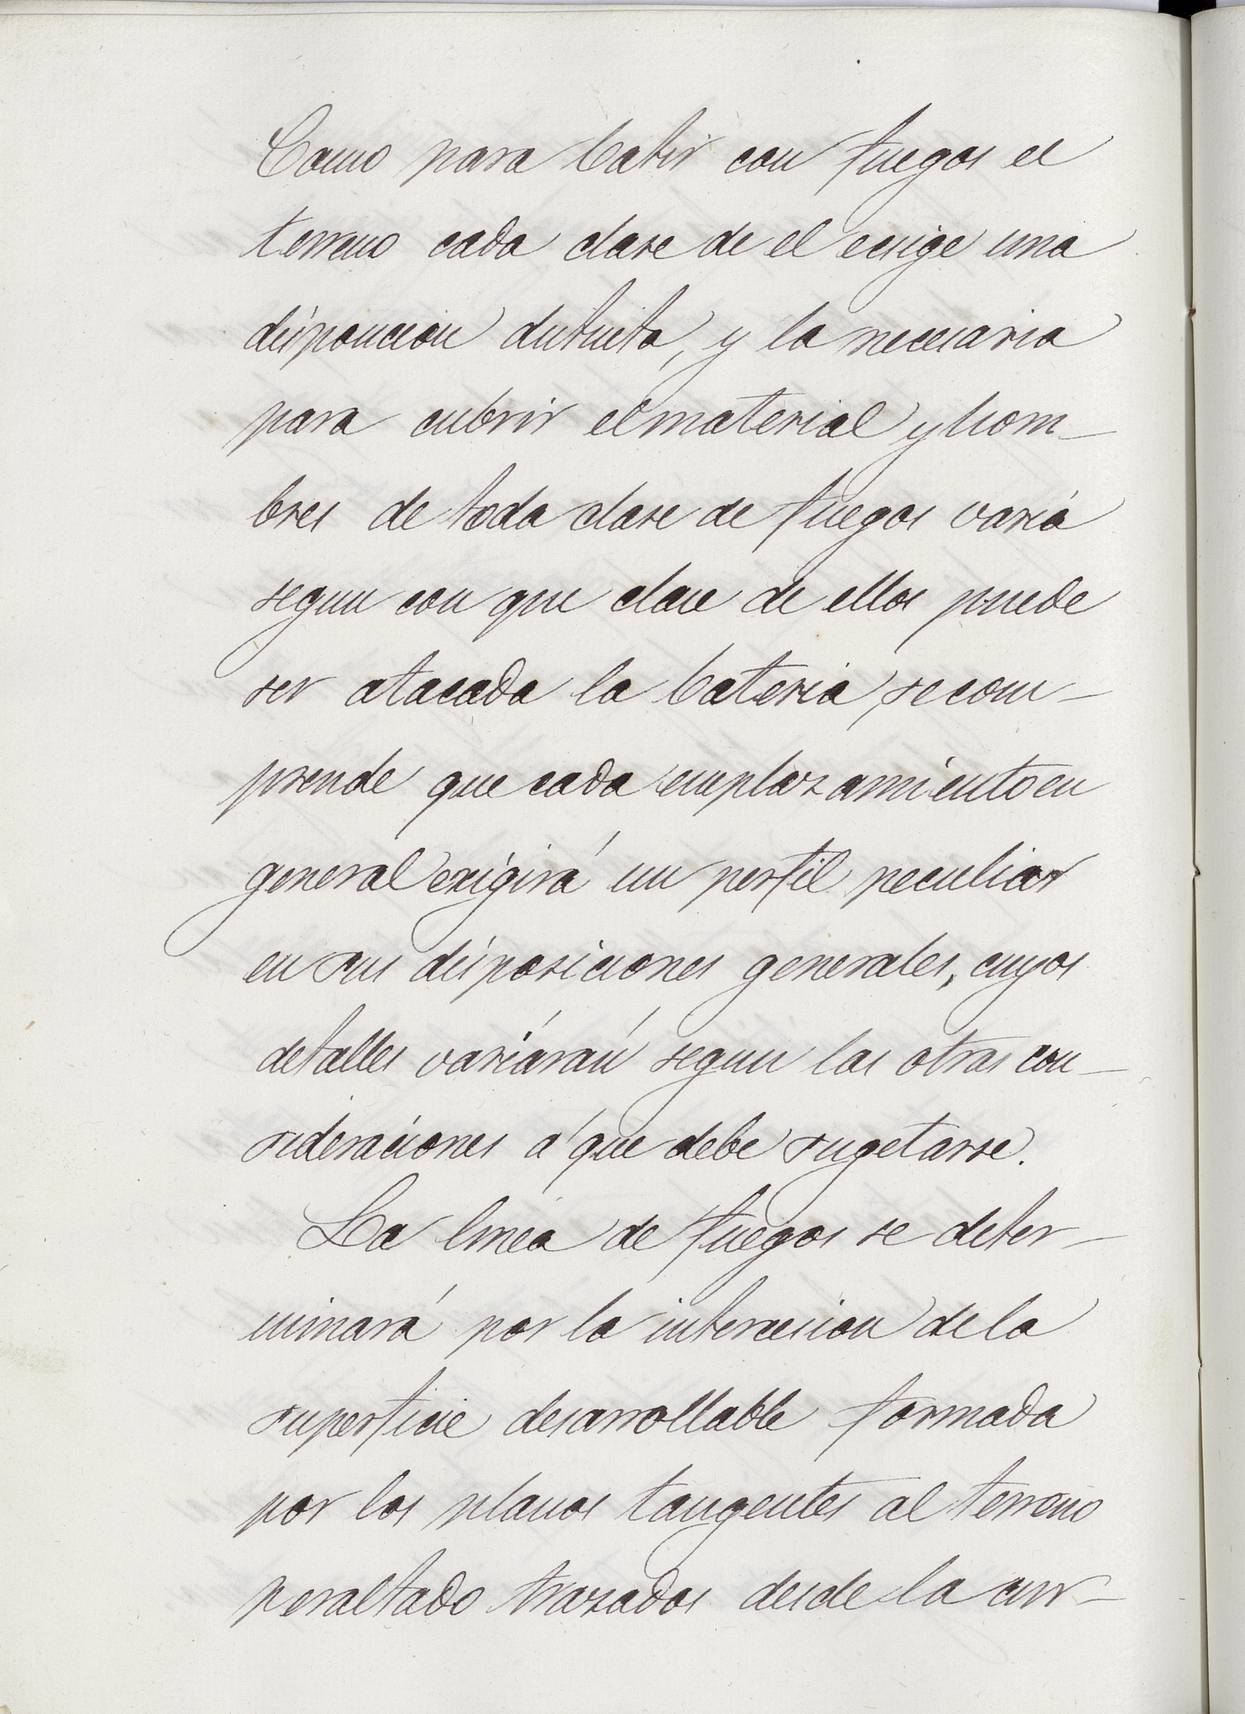 Como para batir con fuegos el
terreno cada clase de el ecsige una
disposicion distinta, y la necesaria
para cubrir el material y hom-
bres de toda clase de fuegos varía
segun con que clase de ellos puede
ser atacada la batería, se com-
prende que cada emplazamiento en
general exigirá un perfil peculiar
en sus disposiciones generales, cuyos
detalles variáran segun las otras con-
sideraciones á que debe sugetarse.
La linea de fuegos se deter-
minará por la intersesion de la
superficie desarrollable formada
por los planos tangentes al terreno
peraltado trazados desde la cur-